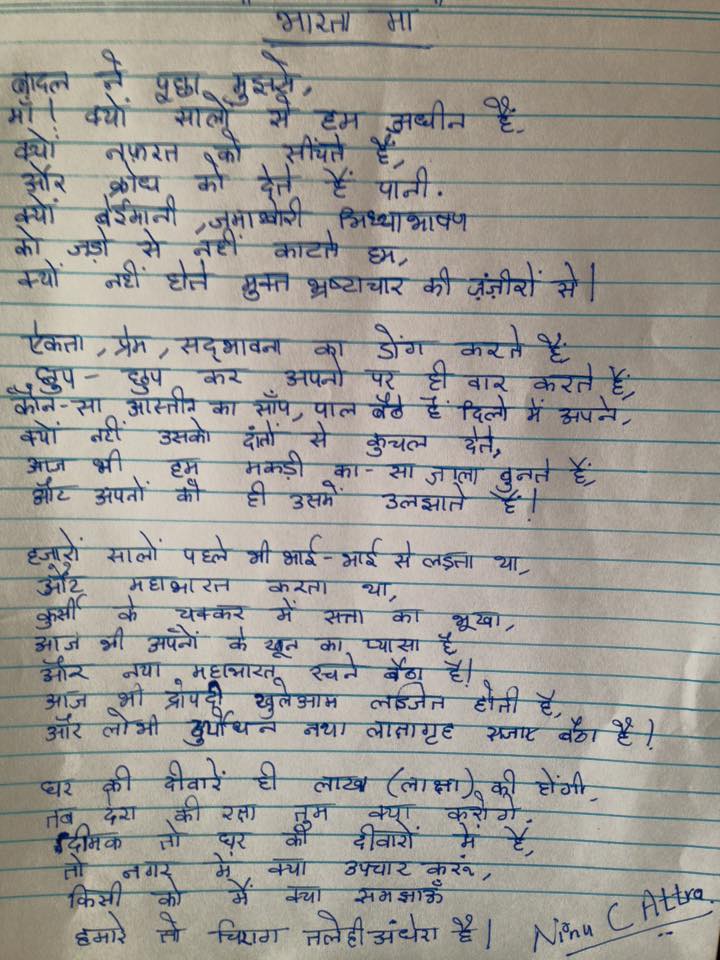 भारता मा
बादल ने पूछा मुझसे,
माँ! क्यों सालों से हम अधीन हैं,
क्यों नफ़रत को सींचते हैं,
और क्रोध को देते हैं पानी.
क्यों बेईमानी, जमाखोरी मिथ्याभाषण
को जड़ो से नहीं काटते हम,
क्यों नहीं होते मुक्त भ्रष्टाचार की ज़ंज़ीरों से।
ऐकता, प्रेम, सद्भावना का डोंग करते हैं
छुप-छुप कर अपनो पर ही वार करते हैं,
कौन-सा आस्तीन का साँप, पाल बैठे हैं दिलो में अपने,
क्यों नहीं उसको दांतो से कुचल देते,
आज भी हम मकड़ी का-सा जाला बुनते हैं,
और अपनों को ही उसमें उलझाते हैं!
हजारों सालों पहले भी भाई-भाई से लड़ता था,
और महाभारत करता था,
कुर्सी के चक्कर में सत्ता का भूखा,
आज भी अपनों के खून का प्यासा है
और नया महाभारत रचने बैठा है!
आज भी द्रोपदी खुलेआम लज्जित होती है,
और लोभी दुर्योधन नया लाक्षागृह सजाए बैठा है!
घर की दीवारें ही लाख (लाक्षा) की होंगी,
तब देश की रक्षा तुम क्या करोगे.
दीमक तो घर की दीवारों में है,
तो नगर में क्या उपचार करूं,
किसी को मैं क्या समझाऊँ
हमारे तो चिराग तले ही अंधेरा है।
Ninu C Attra